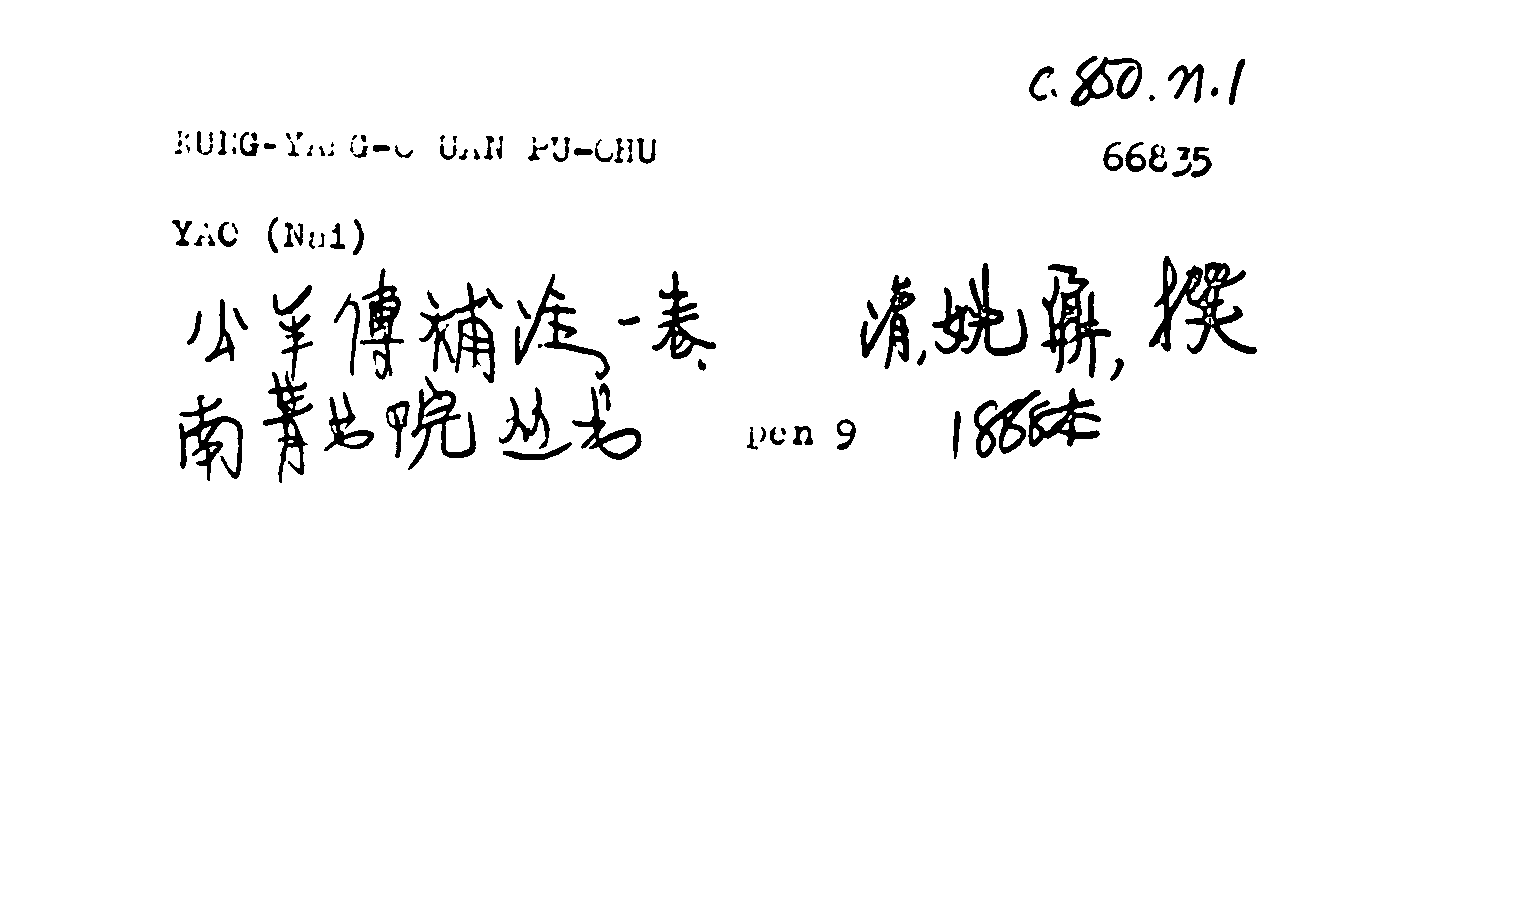 C.850.n.1
KUNG-YANG-CHUAN PU-CHU
66835
YAO (Nai)
公羊傳補注,一卷. 清,姚鼐,撰
南菁书院丛书 pen 9 1888本